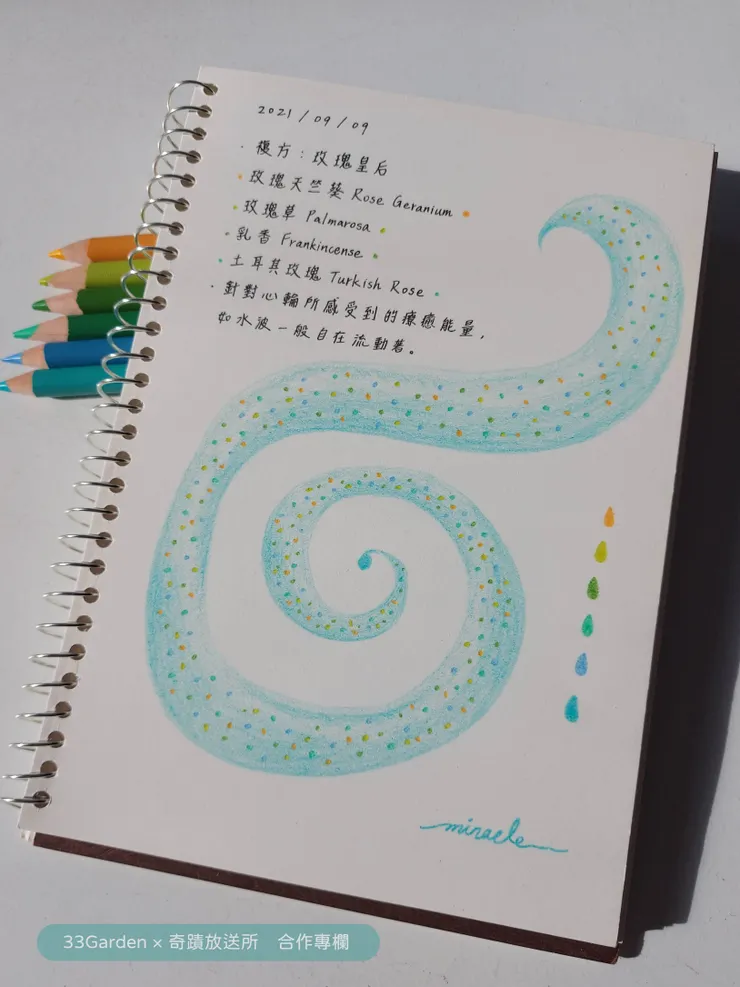 2021/09/09
· 複方：玫瑰皇后
· 玫瑰天竺葵 Rose Geranium
· 玫瑰草 Palmarosa
· 乳香 Frankincense
· 土耳其玫瑰 Turkish Rose
· 針對心輪所感受到的療癒能量，
如水波一般自在流動著。
miracle
33Garden × 奇蹟放送所 合作專欄